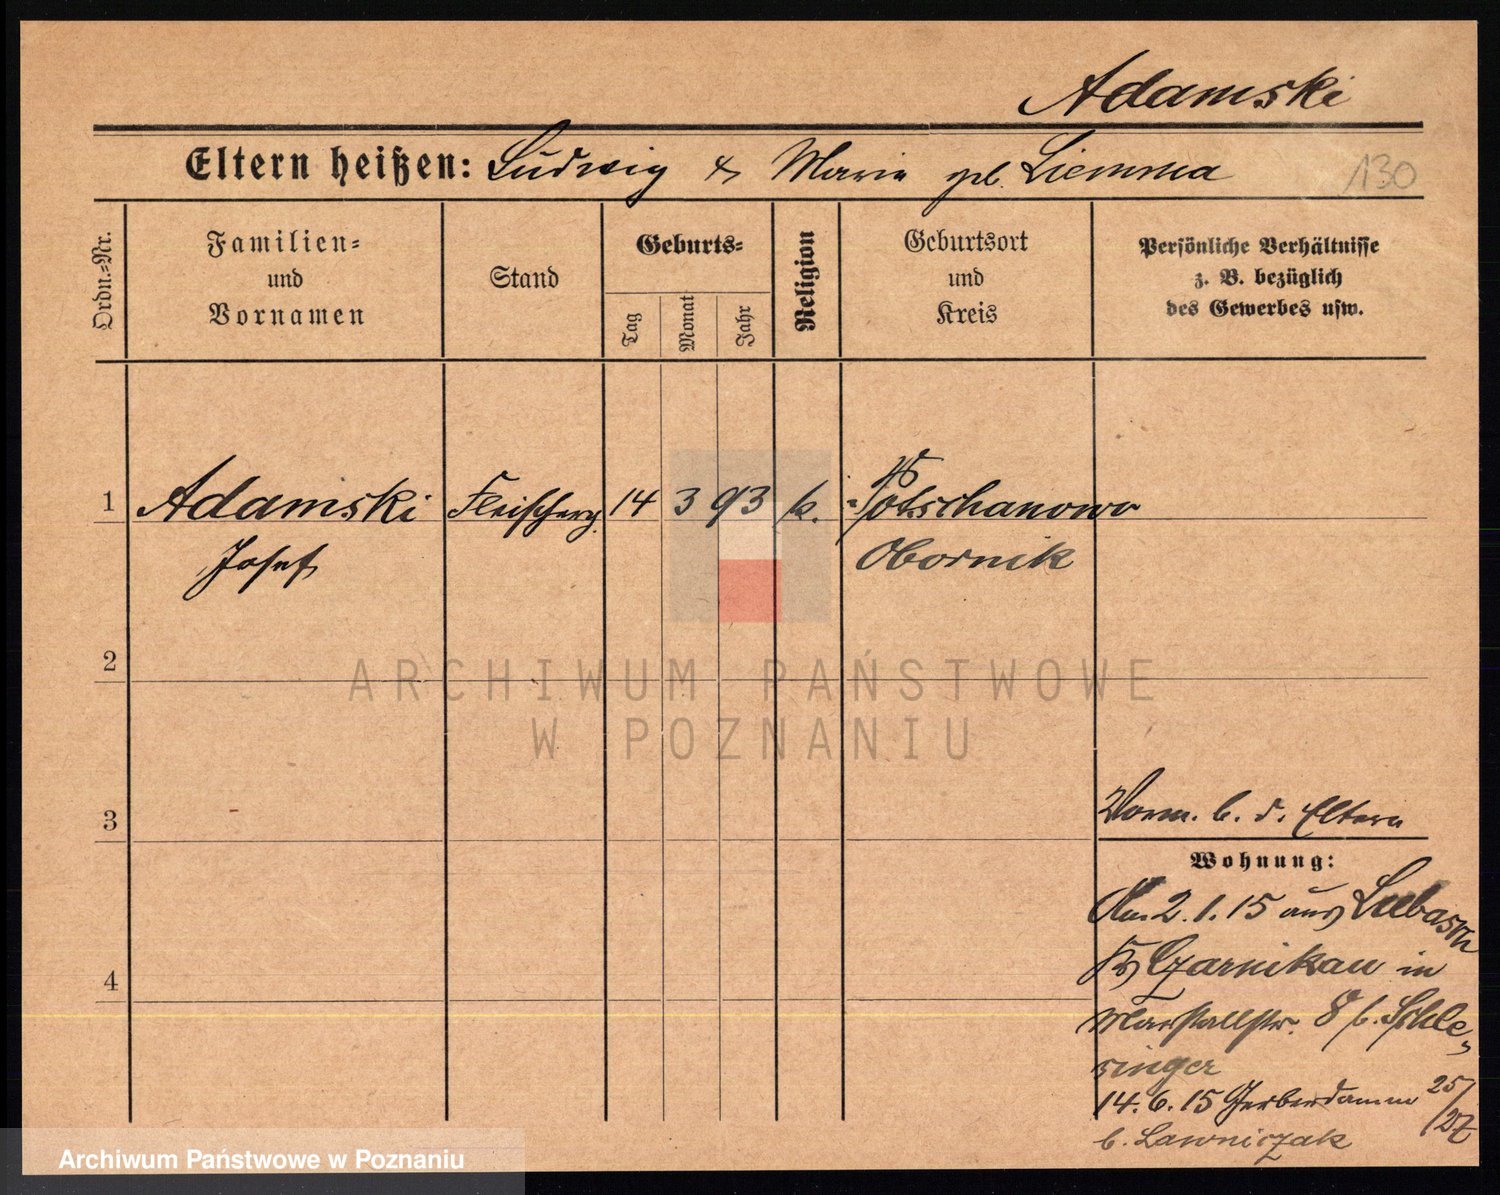 Adamski
Eltern heißen: Ludwig & Marie geb. Liemma
130
Ordn.-Nr.
Familien- und Vornamen
Stand
Geburts-
Tag
Monat
Jahr
Religion
Geburtsort und Kreis
Persönliche Verhältnisse
z. B. bezüglich
des Gewerbes usw.
1 Adamski 14 3 93 k.
Josef Obornik
2
ARCHIWUM PAŃSTWOWE
W POZNANIU
3
Vorm. b. d. Eltern
Wohnung:
Am 2.1.15 aus Lubasch
Kr Czarnikau in
Marstallstr. 8 b. Schle-
singer
14.6.15 Gerberdamm 25/27
b. Lawniczak
4
Archiwum Państwowe w Poznaniu